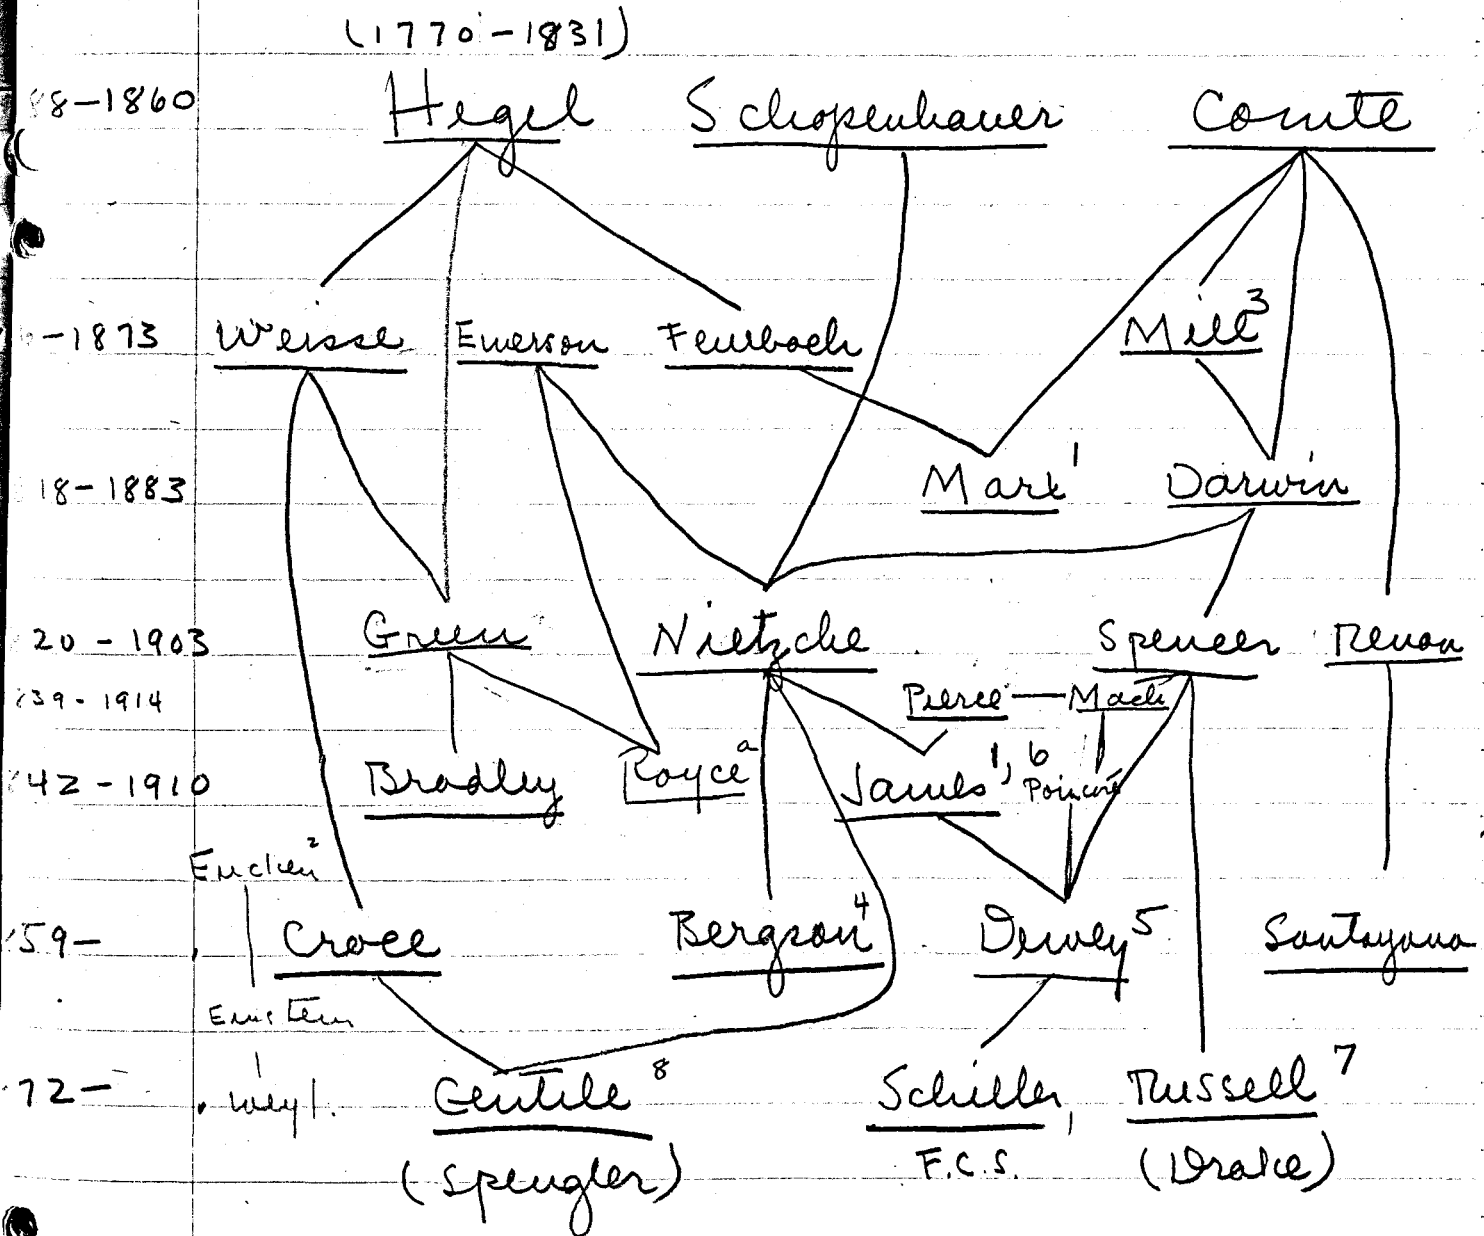 (1770-1831)
88-1860 Hegel Schopenhauer Comte
-1873 Weisse Emerson Feurbach Mill 3
18-1883 Marx 1 Darwin
20-1903 Green Nietzche Spencer Renan
39-1914 Pierce — Mach
42-1910 Bradley Royce a James 1, 6 Poincaré
Eucken 2
59- Croce Bergson 4 Dewey 5 Santayana
Einstein
72- Weyl. Gentile 8 Schiller, Russell 7
(Spengler) F.C.S. (Drake)